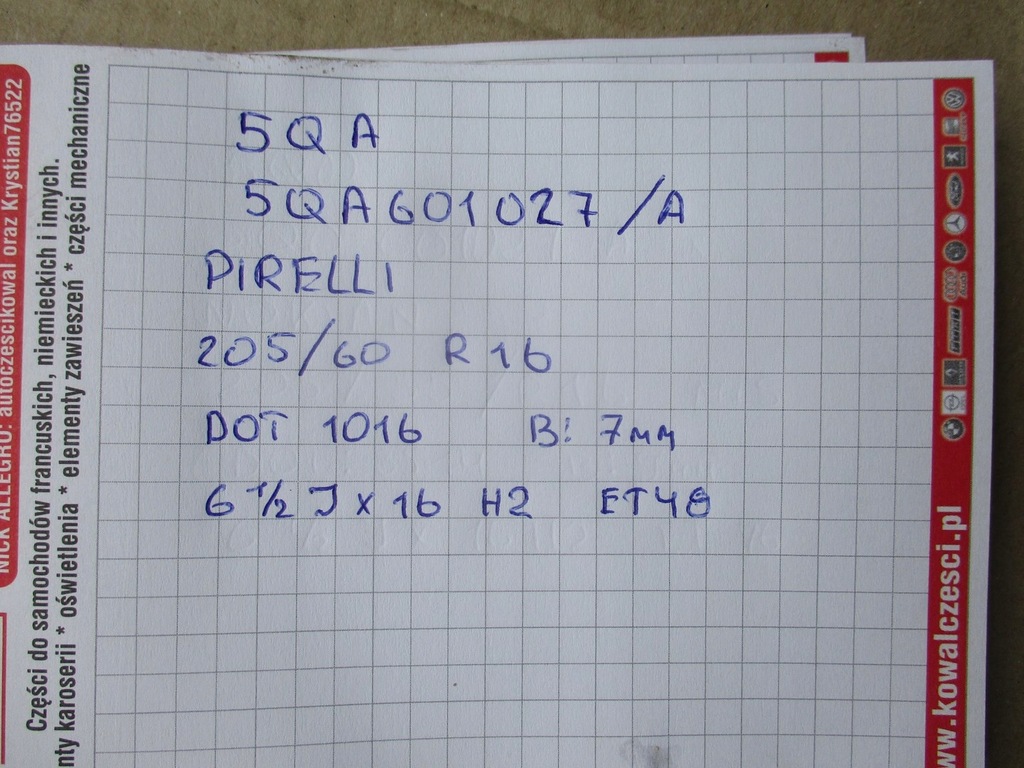 5QA
5QA601027/A
PIRELLI
205/60 R16
DOT 1016 B: 7mm
6 1/2 J x 16 H2 ET48
NICK ALLEGRO: autoczescikowal oraz Krystian76522
Części do samochodów francuskich, niemieckich i innych.
nty karoserii * oświetlenia * elementy zawieszeń * części mechaniczne
ww.kowalczesci.pl